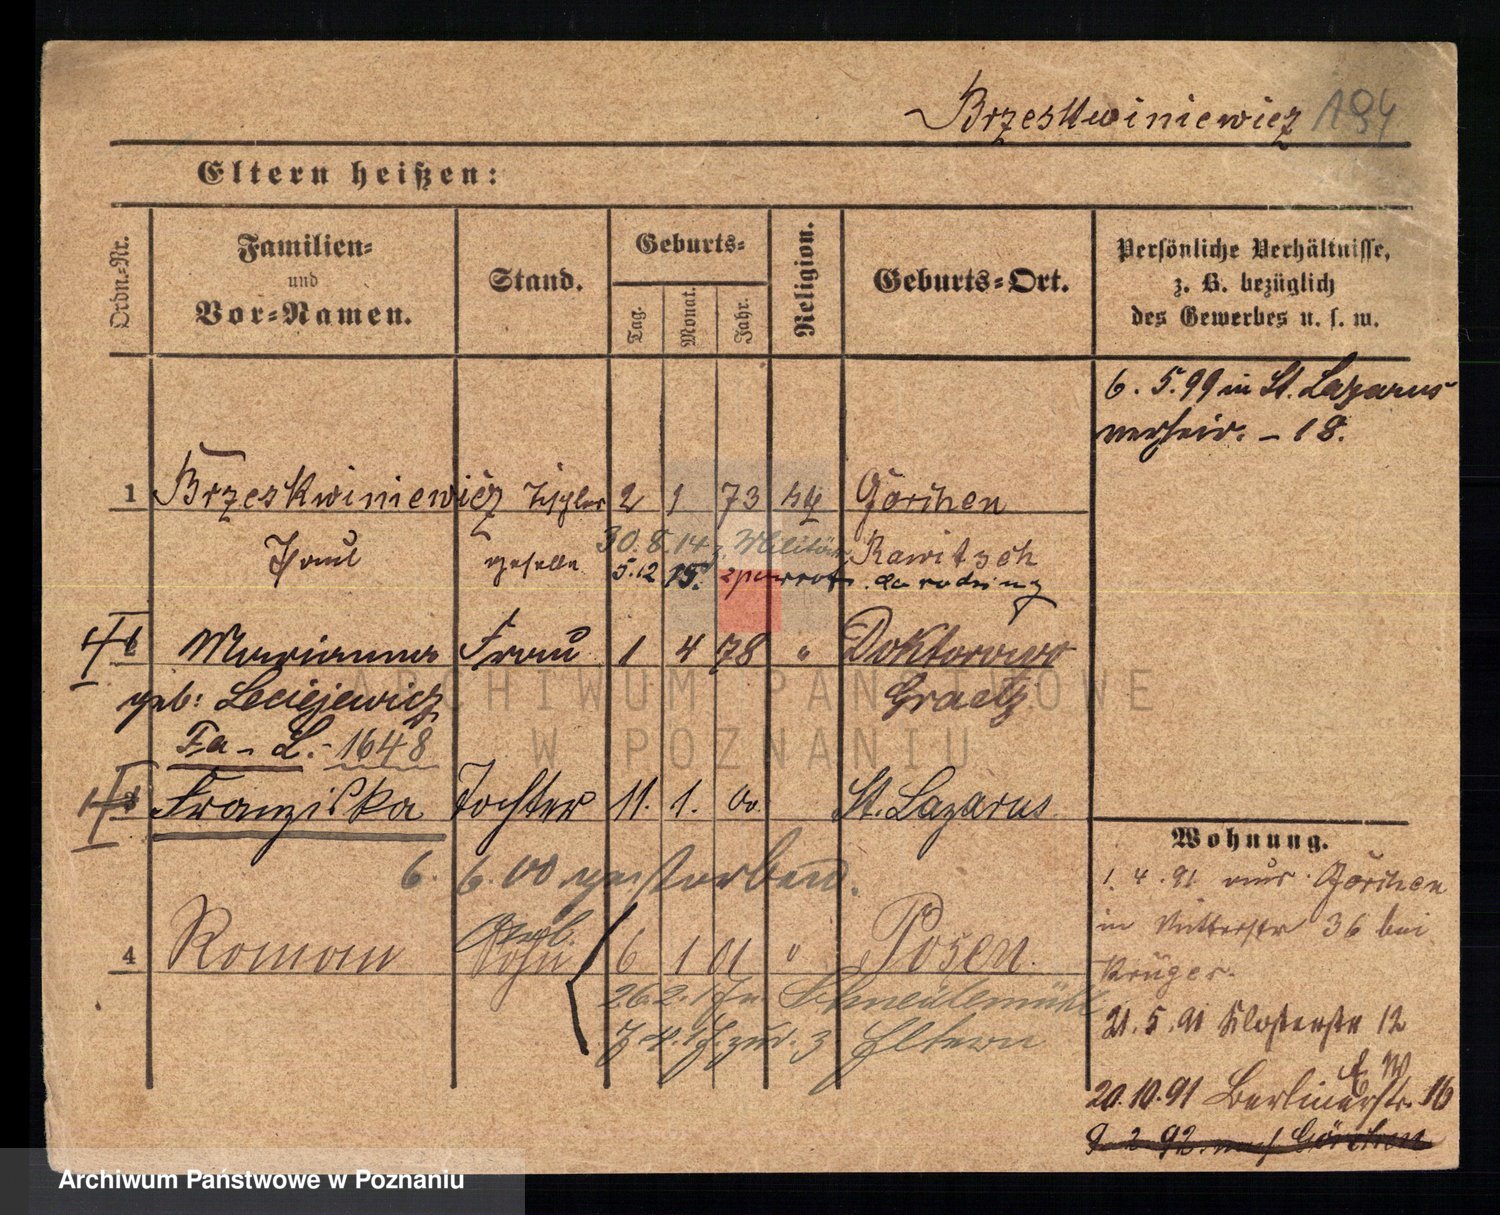 Brzeskwiniewicz 194
Eltern heißen:
Ordn.-Nr.
Familien-
und
Vor-Namen.
Stand.
Geburts-
Tag.
Monat.
Jahr.
Religion.
Geburts-Ort.
Persönliche Verhältnisse,
z. B. bezüglich
des Gewerbes u. s. w.
6. 5. 99 in St. Lazarus
verheir. - 18.
1 Brzeskwiniewicz Tischler 2 1 73 kth Görchen
Paul geselle 30. 8. 14 z. Militär Rawitsch
5. 12 15. zpowrot do rodziny
Marianna Frau 1 4 78 " Doktorowo
geb: Leciejewicz Graetz
Fa - L. - 1648
Franziska Tochter 11. 1. 00. St. Lazarus
6. 6. 00 gestorben.
4 Roman Sohn 6 1 01 " Posen.
26. 2. 17 n. Schneidemühl
7. 4. 17 zur. z Eltern
Wohnung.
1. 4. 91 aus Görchen
in Ritterstr 36 bei
Krüger.
21. 5. 91 Klosterstr 12
20. 10. 91 Berlinerstr. 16
9 2 92 nach Görchen
ARCHIWUM PAŃSTWOWE
W POZNANIU
Archiwum Państwowe w Poznaniu